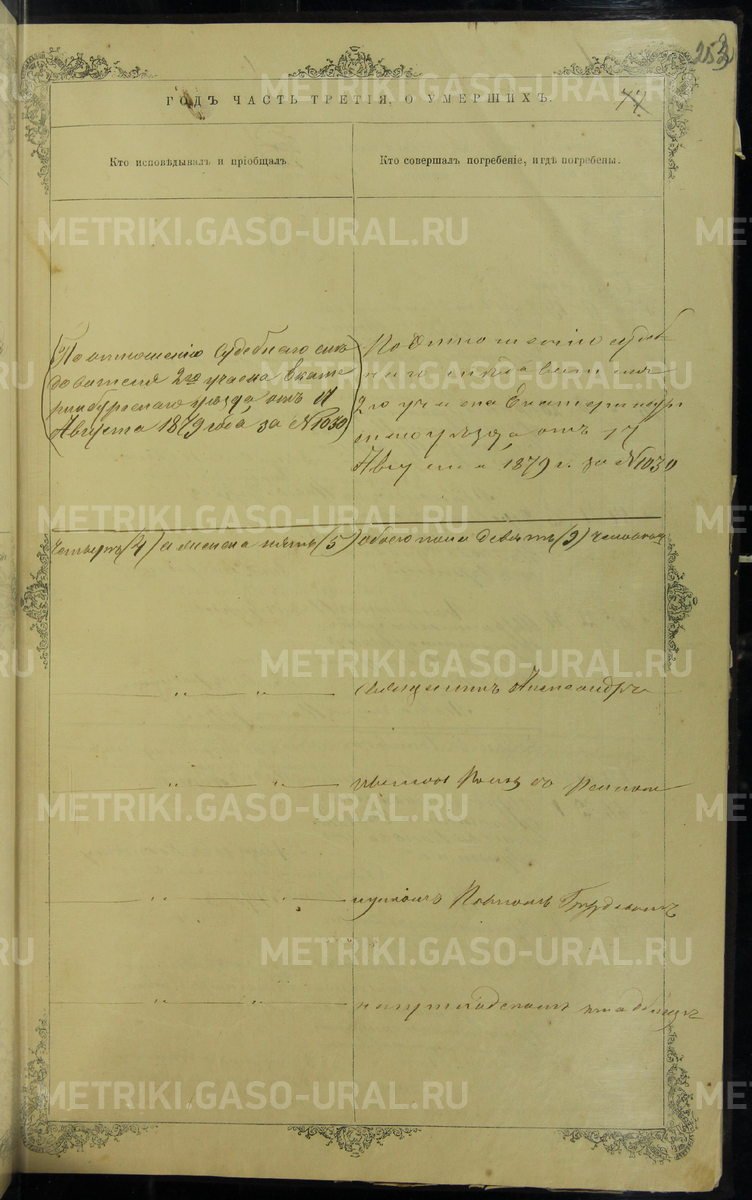 253
ГОДЪ ЧАСТЬ ТРЕТІЯ, О УМЕРШИХЪ.
77
Кто исповѣдывалъ и пріобщалъ.
Кто совершалъ погребеніе, и гдѣ погребены.
(По отношенію Судебнаго слѣ
дователя 2го участка Екате
ринбургскаго уѣзда отъ 17
Августа 1879 года за №1030)
По Отношенію судеб
наго слѣдователя
2го участка Екатеринбур
скаго уѣзда отъ 17
Августа 1879 г. за №1030
четыре (4) а женска пять (5) обоего пола девять (9) человѣкъ
Священникъ Александръ
съ
Павломъ
на приходскомъ кладбищѣ
METRIKI.GASO-URAL.RU